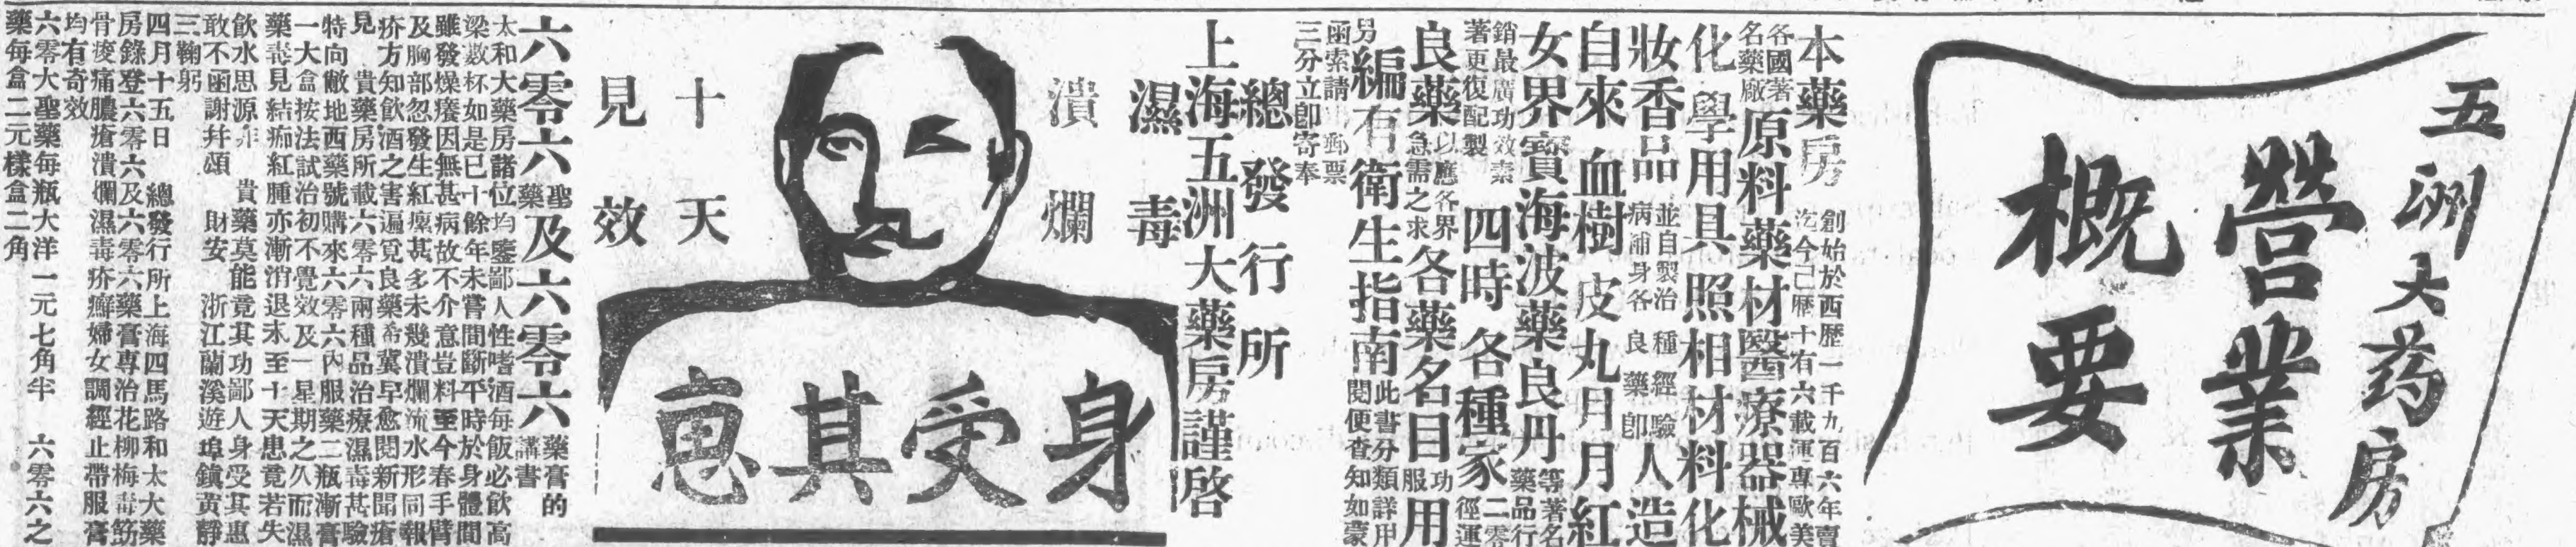 五洲大药房
營業
概要
本藥房創始於西歷一千九百六年賣
汔今已歷十有六載運專歐美
各國著
名藥廠原料藥材醫療器械
化學用具照相材料化
妝香品並自製治種經驗
病補身各良藥卽人造
自來血樹皮丸月月紅
女界寶海波藥良丹等著名
藥品行
銷最廣功效素
著更復配製四時各種家二零
徑運
良藥以應各界
急需之求各藥名目功
服用
另編有衛生指南此書分類詳用
閱便查知如蒙
函索請 郵票
三分立卽寄奉
總發行所
上海五洲大藥房謹啓
濕毒
潰爛
身受其惠
十天
見效
六零六聖
藥及六零六藥膏的
講書
太和大藥房諸位均鑒鄙人性嗜酒每飯必飲高
梁數杯如是已十餘年未嘗間斷平時於身體間
雖發燥癢因無甚病故不介意豈料至今春手臂
及胸部忽發生紅瘰甚多未幾潰爛流水形同報
疥方知飲酒之害遍覓良藥希冀早愈閱新聞瘡
見貴藥房所載六零六兩種品治療濕毒甚驗
特向敝地西藥號購來六零六內服藥二瓶漸膏
一大盒按法試治初不覺效及一星期之久而濕
藥毒見結痂紅腫亦漸消退未至十天患竟若失
飲水思源非貴藥莫能竟其功鄙人身受其惠
敢不函謝幷頌財安浙江蘭溪遊埠鎮黃靜
三鞠躬
四月十五日總發行所上海四馬路和太大藥
房錄登六零六及六零六藥膏專治花柳梅毒筋
骨痠痛膿瘡潰爛濕毒疥癬婦女調經止帶服膏
均有奇效
六零大聖藥每瓶大洋一元七角半六零六之
藥每盒二元樣盒二角